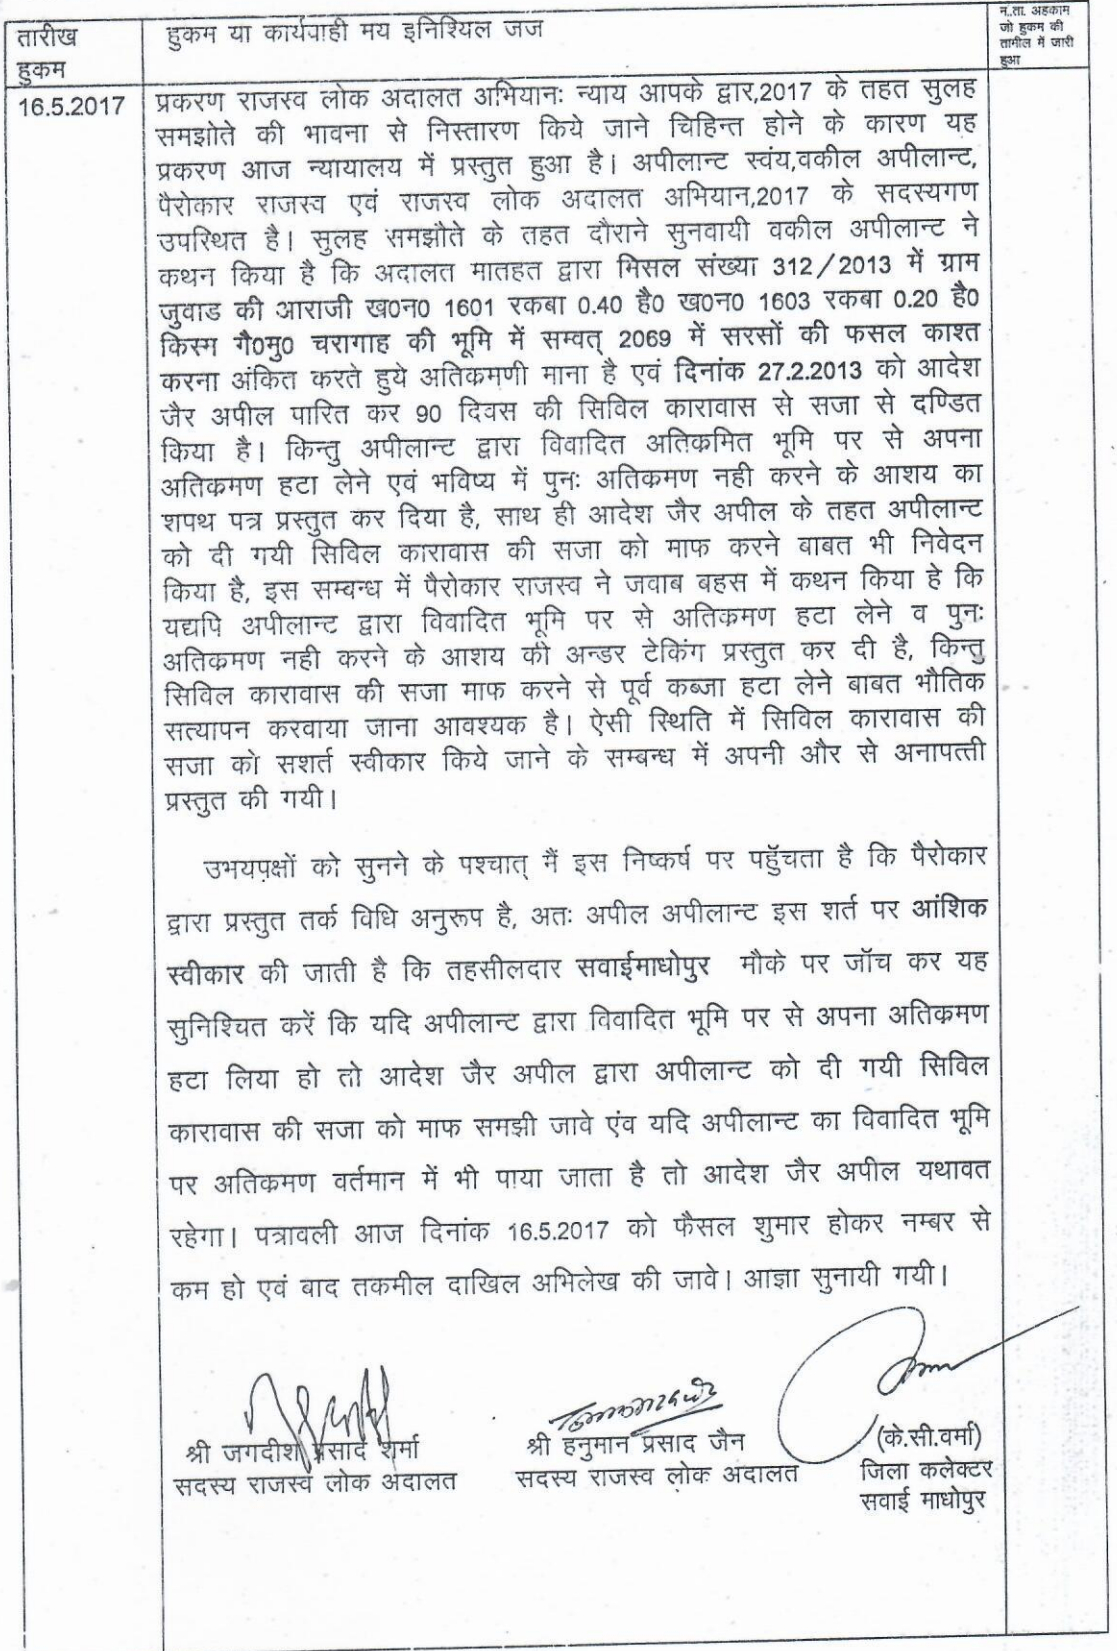 तारीख हुकम
हुकम या कार्यवाही मय इनिश्यिल जज
न.ता. अहकाम
जो हुकम की
तामील में जारी
हुआ
16.5.2017
प्रकरण राजस्व लोक अदालत अभियानः न्याय आपके द्वार,2017 के तहत सुलह
समझोते की भावना से निस्तारण किये जाने चिहिन्त होने के कारण यह
प्रकरण आज न्यायालय में प्रस्तुत हुआ है। अपीलान्ट स्वंय,वकील अपीलान्ट,
पैरोकार राजस्व एवं राजस्व लोक अदालत अभियान,2017 के सदस्यगण
उपस्थित है। सुलह समझौते के तहत दौराने सुनवायी वकील अपीलान्ट ने
कथन किया है कि अदालत मातहत द्वारा मिसल संख्या 312/2013 में ग्राम
जुवाड की आराजी ख0न0 1601 रकबा 0.40 है0 ख0न0 1603 रकबा 0.20 है0
किस्म गै0मु0 चरागाह की भूमि में सम्वत् 2069 में सरसों की फसल काश्त
करना अंकित करते हुये अतिकमणी माना है एवं दिनांक 27.2.2013 को आदेश
जैर अपील पारित कर 90 दिवस की सिविल कारावास से सजा से दण्डित
किया है। किन्तु अपीलान्ट द्वारा विवादित अतिकमित भूमि पर से अपना
अतिकमण हटा लेने एवं भविष्य में पुनः अतिकमण नही करने के आशय का
शपथ पत्र प्रस्तुत कर दिया है, साथ ही आदेश जैर अपील के तहत अपीलान्ट
को दी गयी सिविल कारावास की सजा को माफ करने बाबत भी निवेदन
किया है, इस सम्बन्ध में पैरोकार राजस्व ने जवाब बहस में कथन किया हे कि
यद्यपि अपीलान्ट द्वारा विवादित भूमि पर से अतिकमण हटा लेने व पुनः
अतिकमण नही करने के आशय की अन्डर टेकिंग प्रस्तुत कर दी है, किन्तु
सिविल कारावास की सजा माफ करने से पूर्व कब्जा हटा लेने बाबत भौतिक
सत्यापन करवाया जाना आवश्यक है। ऐसी स्थिति में सिविल कारावास की
सजा को सशर्त स्वीकार किये जाने के सम्बन्ध में अपनी और से अनापत्ती
प्रस्तुत की गयी।
उभयपक्षों को सुनने के पश्चात् मैं इस निष्कर्ष पर पहुॅचता है कि पैरोकार
द्वारा प्रस्तुत तर्क विधि अनुरूप है, अतः अपील अपीलान्ट इस शर्त पर आंशिक
स्वीकार की जाती है कि तहसीलदार सवाईमाधोपुर मौके पर जॉच कर यह
सुनिश्चित करें कि यदि अपीलान्ट द्वारा विवादित भूमि पर से अपना अतिकमण
हटा लिया हो तो आदेश जैर अपील द्वारा अपीलान्ट को दी गयी सिविल
कारावास की सजा को माफ समझी जावे एंव यदि अपीलान्ट का विवादित भूमि
पर अतिकमण वर्तमान में भी पाया जाता है तो आदेश जैर अपील यथावत
रहेगा। पत्रावली आज दिनांक 16.5.2017 को फैसल शुमार होकर नम्बर से
कम हो एवं बाद तकमील दाखिल अभिलेख की जावे। आज्ञा सुनायी गयी।
श्री जगदीश प्रसाद शर्मा
सदस्य राजस्व लोक अदालत
श्री हनुमान प्रसाद जैन
सदस्य राजस्व लोक अदालत
(के.सी.वर्मा)
जिला कलेक्टर
सवाई माधोपुर